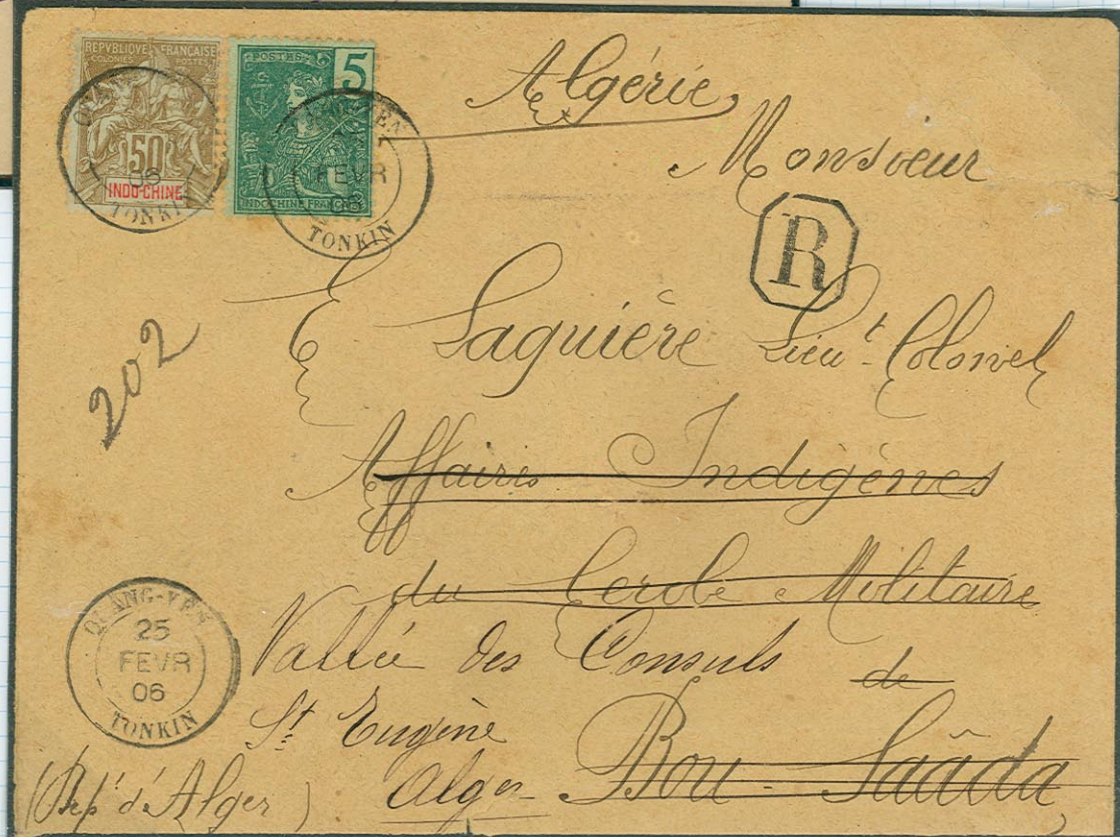 REPVBLIQVE FRANÇAISE
COLONIES POSTES
50
INDO-CHINE
POSTES 5
INDOCHINE FRANÇAISE
06
TONKIN
FEVR
06
TONKIN
Algérie
Monsieur
R
Laquière Lieut. Colonel
202
Affaires Indigènes
du Cercle Militaire
QUANG-YEN
25
FEVR
06
TONKIN
Vallée des Consuls de
St Eugène Bou Saâda
(Dépt d'Alger) Alger